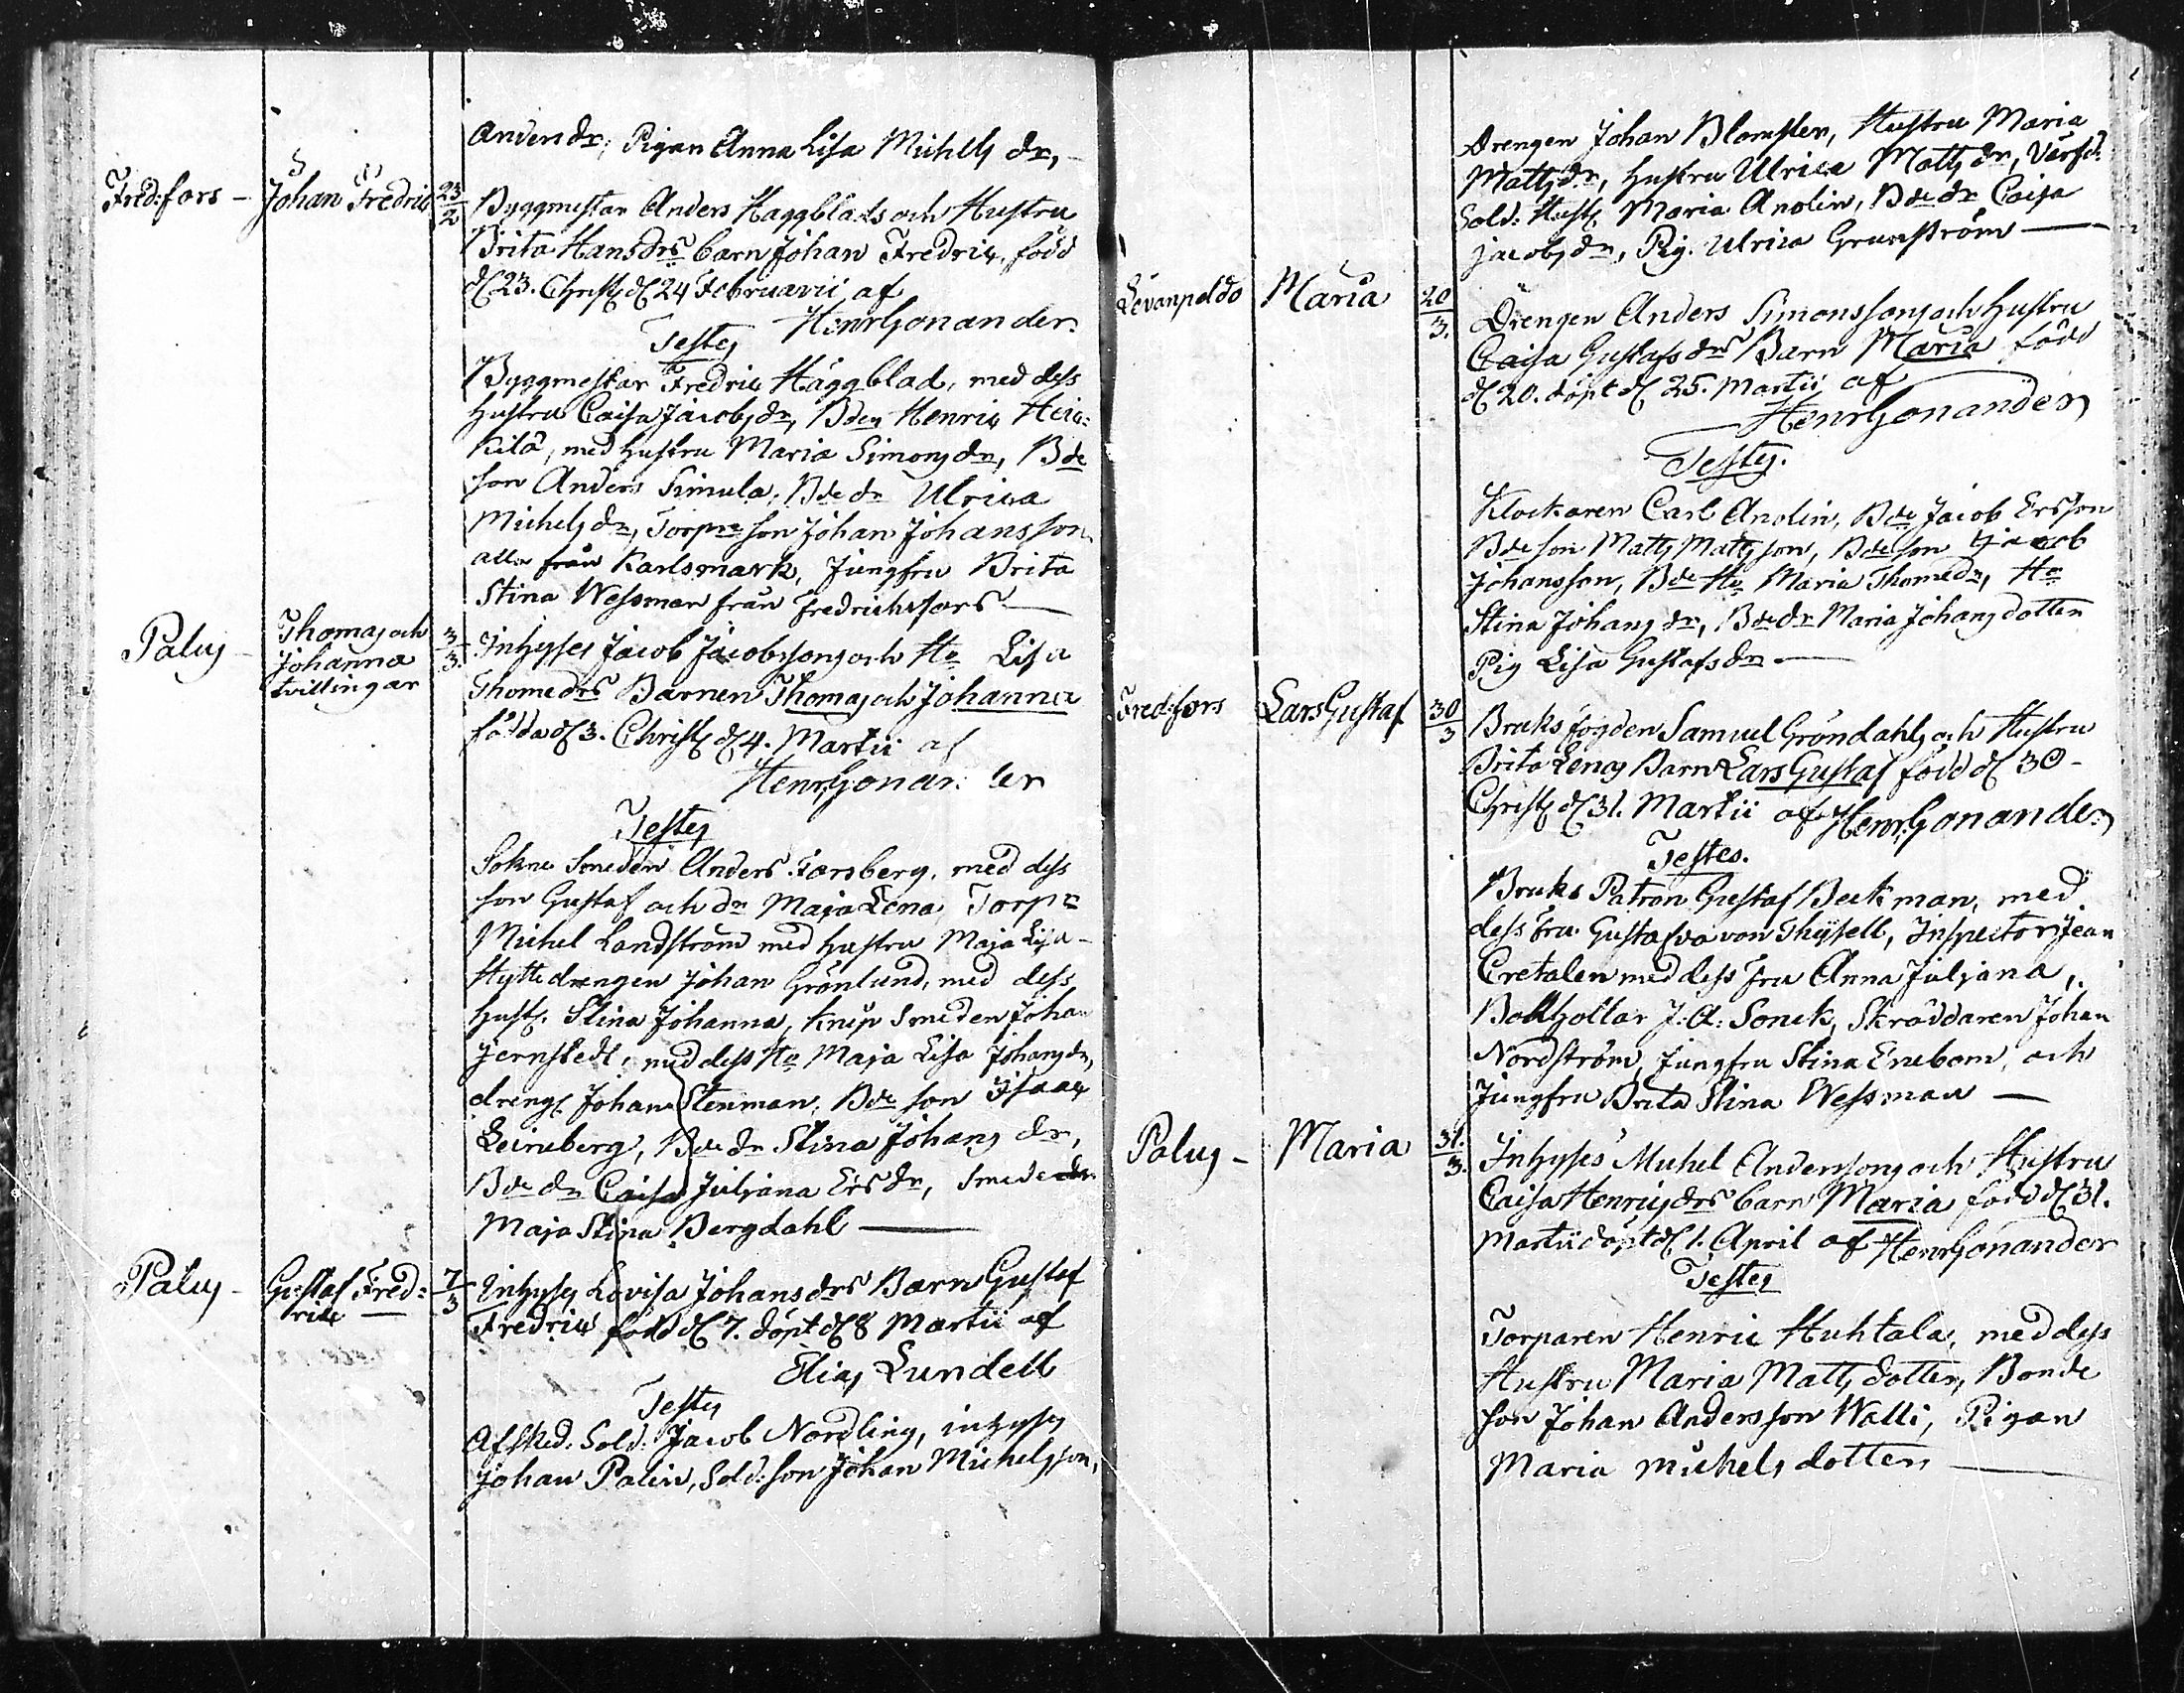 Anders dr, Pigan Anna Lisa Michels dr, –
Fred:fors – Johan Fredric 23/2 Byggmestar Anders Häggblads och Hustru
Brita Hansdrs barn Johan Fredric, född
d 23. Christ d 24 Februarii af
HenrGonander
Testes
Byggmestar Fredric Häggblad, med dess
hustru Caisa Jacobs dr, Bden Henric Heic=
kilä, med hustru Maria Simons dr, Bde
son Anders Simula, Bde dr Ulrica
Michels dr, Torpre son Johan Johansson
alla från Karlsmark, Jungfru Brita
Stina Wessman från Fredrichsfors –
Palus – Thomas och Johanna tvillingar 3/3. Inhyses Jacob Jacobssons och Hu Lisa
Thomedrs Barnen Thomas och Johanna
födda d 3. Christ d 4. Martii af
HenrGonander
Testes
Sokne Smeden Anders Forsberg, med dess
son Gustaf och dr Maja Lena, Torpr
Michel Landström med hustru Maja Lisa –
Hyttedrengen Johan Grönlund, med dess
hust. Stina Johanna, Knip Smeden Johan
Jernstedt, med dess Hu Maja Lisa Johans dr,
dreng Johan Stenman, Bde son Isaac
Leineberg, Bde dr Stina Johans dr,
Bde dr Caisa Juliana Ersdr, Smede dr
Maja Stina Bergdahl –
Palus – Gustaf Fred=ric – 7/3 Inhyses Lovisa Johansdrs Barn Gustaf
Fredric född d 7. döpt d 8 Martii af
Elias Lundell
Testes
Afsked. Sold. Jacob Nordling, inhyses
Johan Palin, Sold: son Johan Michelsson,
Drengen Johan Blomster, Hustru Maria
Matts dr, hustru Ulrica Matts dr, Värfd.
Sold. Hust Maria Anolin, Bde dr Caisa
Jacobs dr, Pig. Ulrica Grannström –
Levanpeldo Maria 20/3. Drengen Anders Simonssons och hustru
Caisa Gustafsdrs Barn Maria född
d 20. döpt d 25. Martii af
HenrGonander
Testes.
Klockaren Carl Anolin, Bde Jacob Ersson
Bde son Matts Mattsson, Bde son Jacob
Johansson, Bde Hu Maria Thomedr, Hu
Stina Johans dr, Bde dr Maria Johans dotter
Pig Lisa Gustafsdr –
Fred:fors Lars Gustaf 30/3 Bruks fogden Samuel Gröndahls och Hustru
Brita Lenas Barn Lars Gustaf född d 30 –
Christ d 31. Martii af HenrGonander
Testes.
Bruks Patron Gustaf Beckman, med
dess Fru Gustafva von Thysell, Inspector Jean
Cretalen med dess Fru Anna Juliana,
Bokhollar J. A: Sonck, Skräddaren Johan
Nordström, Jungfru Stina Enebom, och
Jungfru Brita Stina Wessman –
Palus – Maria 31./3. Inhyses Michel Anderssons och Hustru
Caisa Henricsdrs barn Maria född d 31.
Martii döpt d 1. April af HenrGonander
Testes
Torparen Henric Huhtala, med dess
Hustru Maria Matts dotter, Bonde
son Johan Andersson Walli, Pigan
Maria Michels dotter –